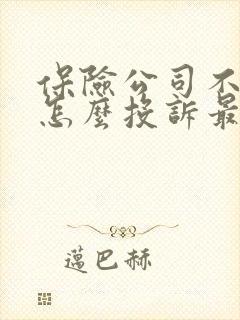 保險公司不
怎麼投訴最
薖巴赫